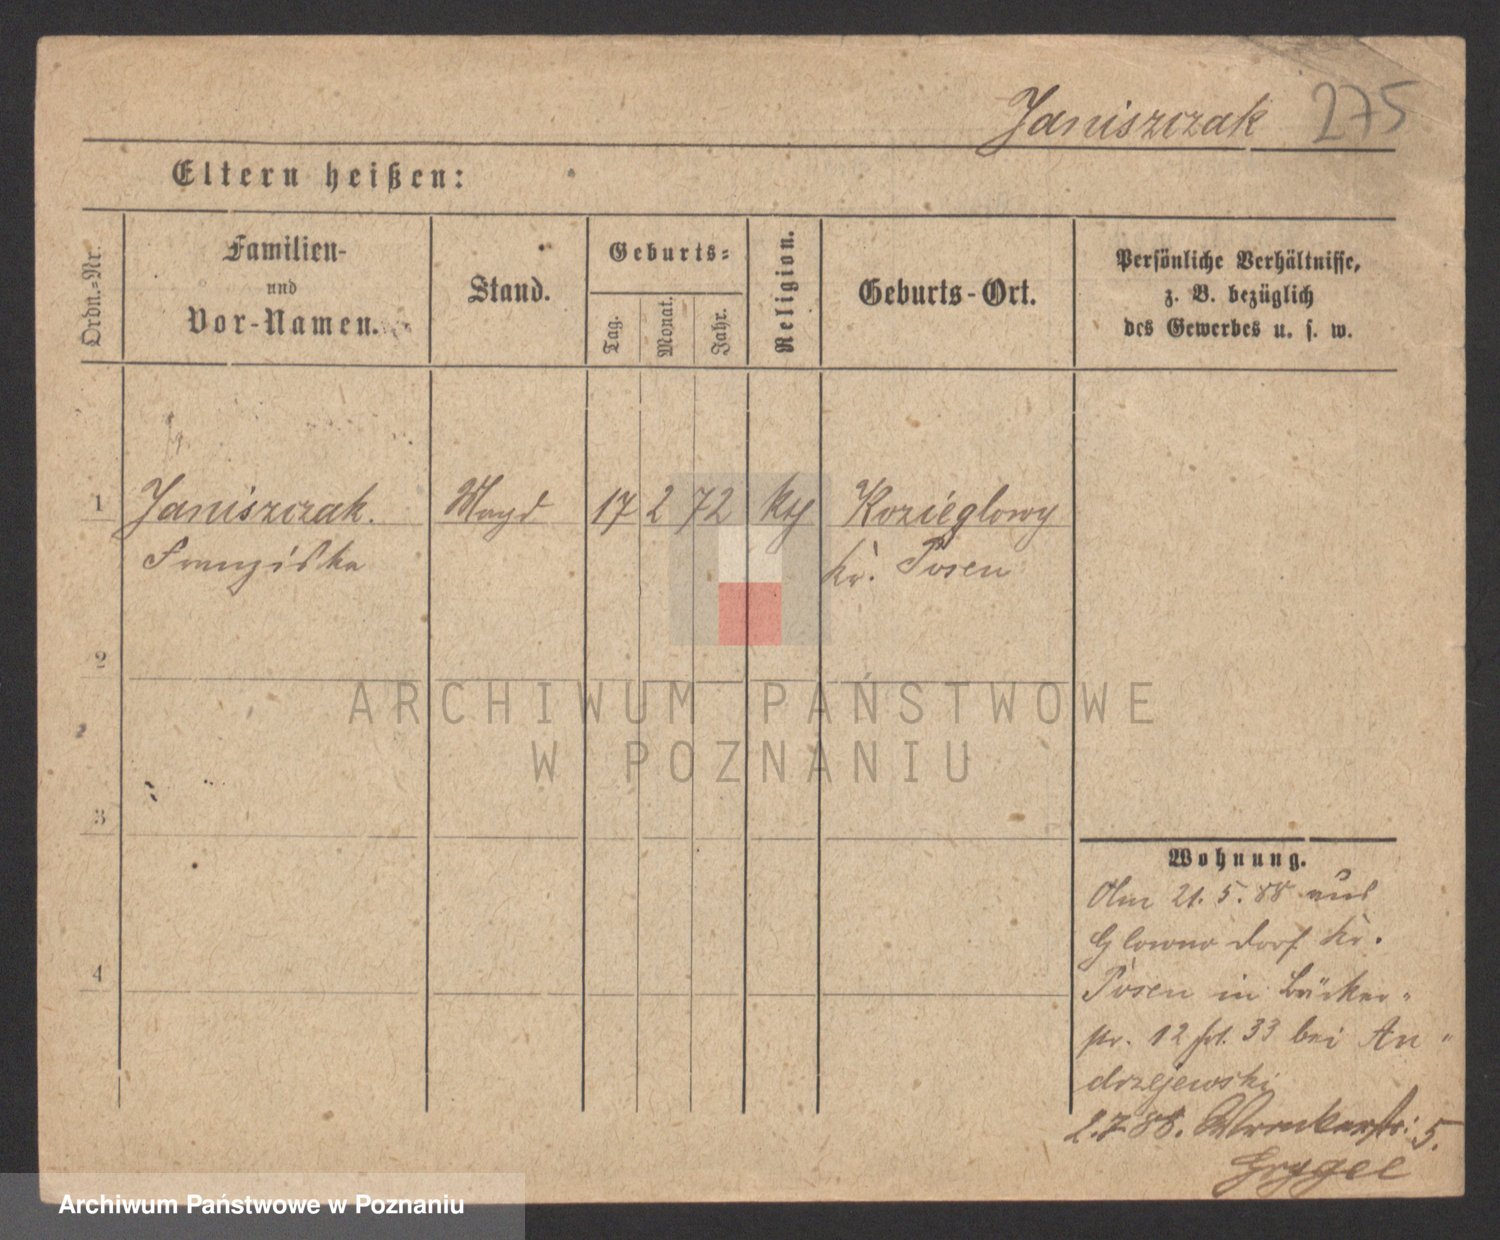 Janiszczak 275
Eltern heißen:
Ordn.=Nr.
Familien-
und
Vor-Namen.
Stand.
Geburts=
Tag.
Monat.
Jahr.
Religion.
Geburts-Ort.
Persönliche Verhältnisse,
z. B. bezüglich
des Gewerbes u. s. w.
1 Janiszczak. Magd 17 2 72 kth Kozieglowy
Franziska Kr. Posen
2
3
4
Wohnung.
Am 21. 5. 88 aus
Glowno Dorf Kr.
Posen in Bäcker-
str. 12 bei An-
drzejewski
2.7.88. Wronkerstr: 5.
Grygel
ARCHIWUM PAŃSTWOWE
W POZNANIU
Archiwum Państwowe w Poznaniu